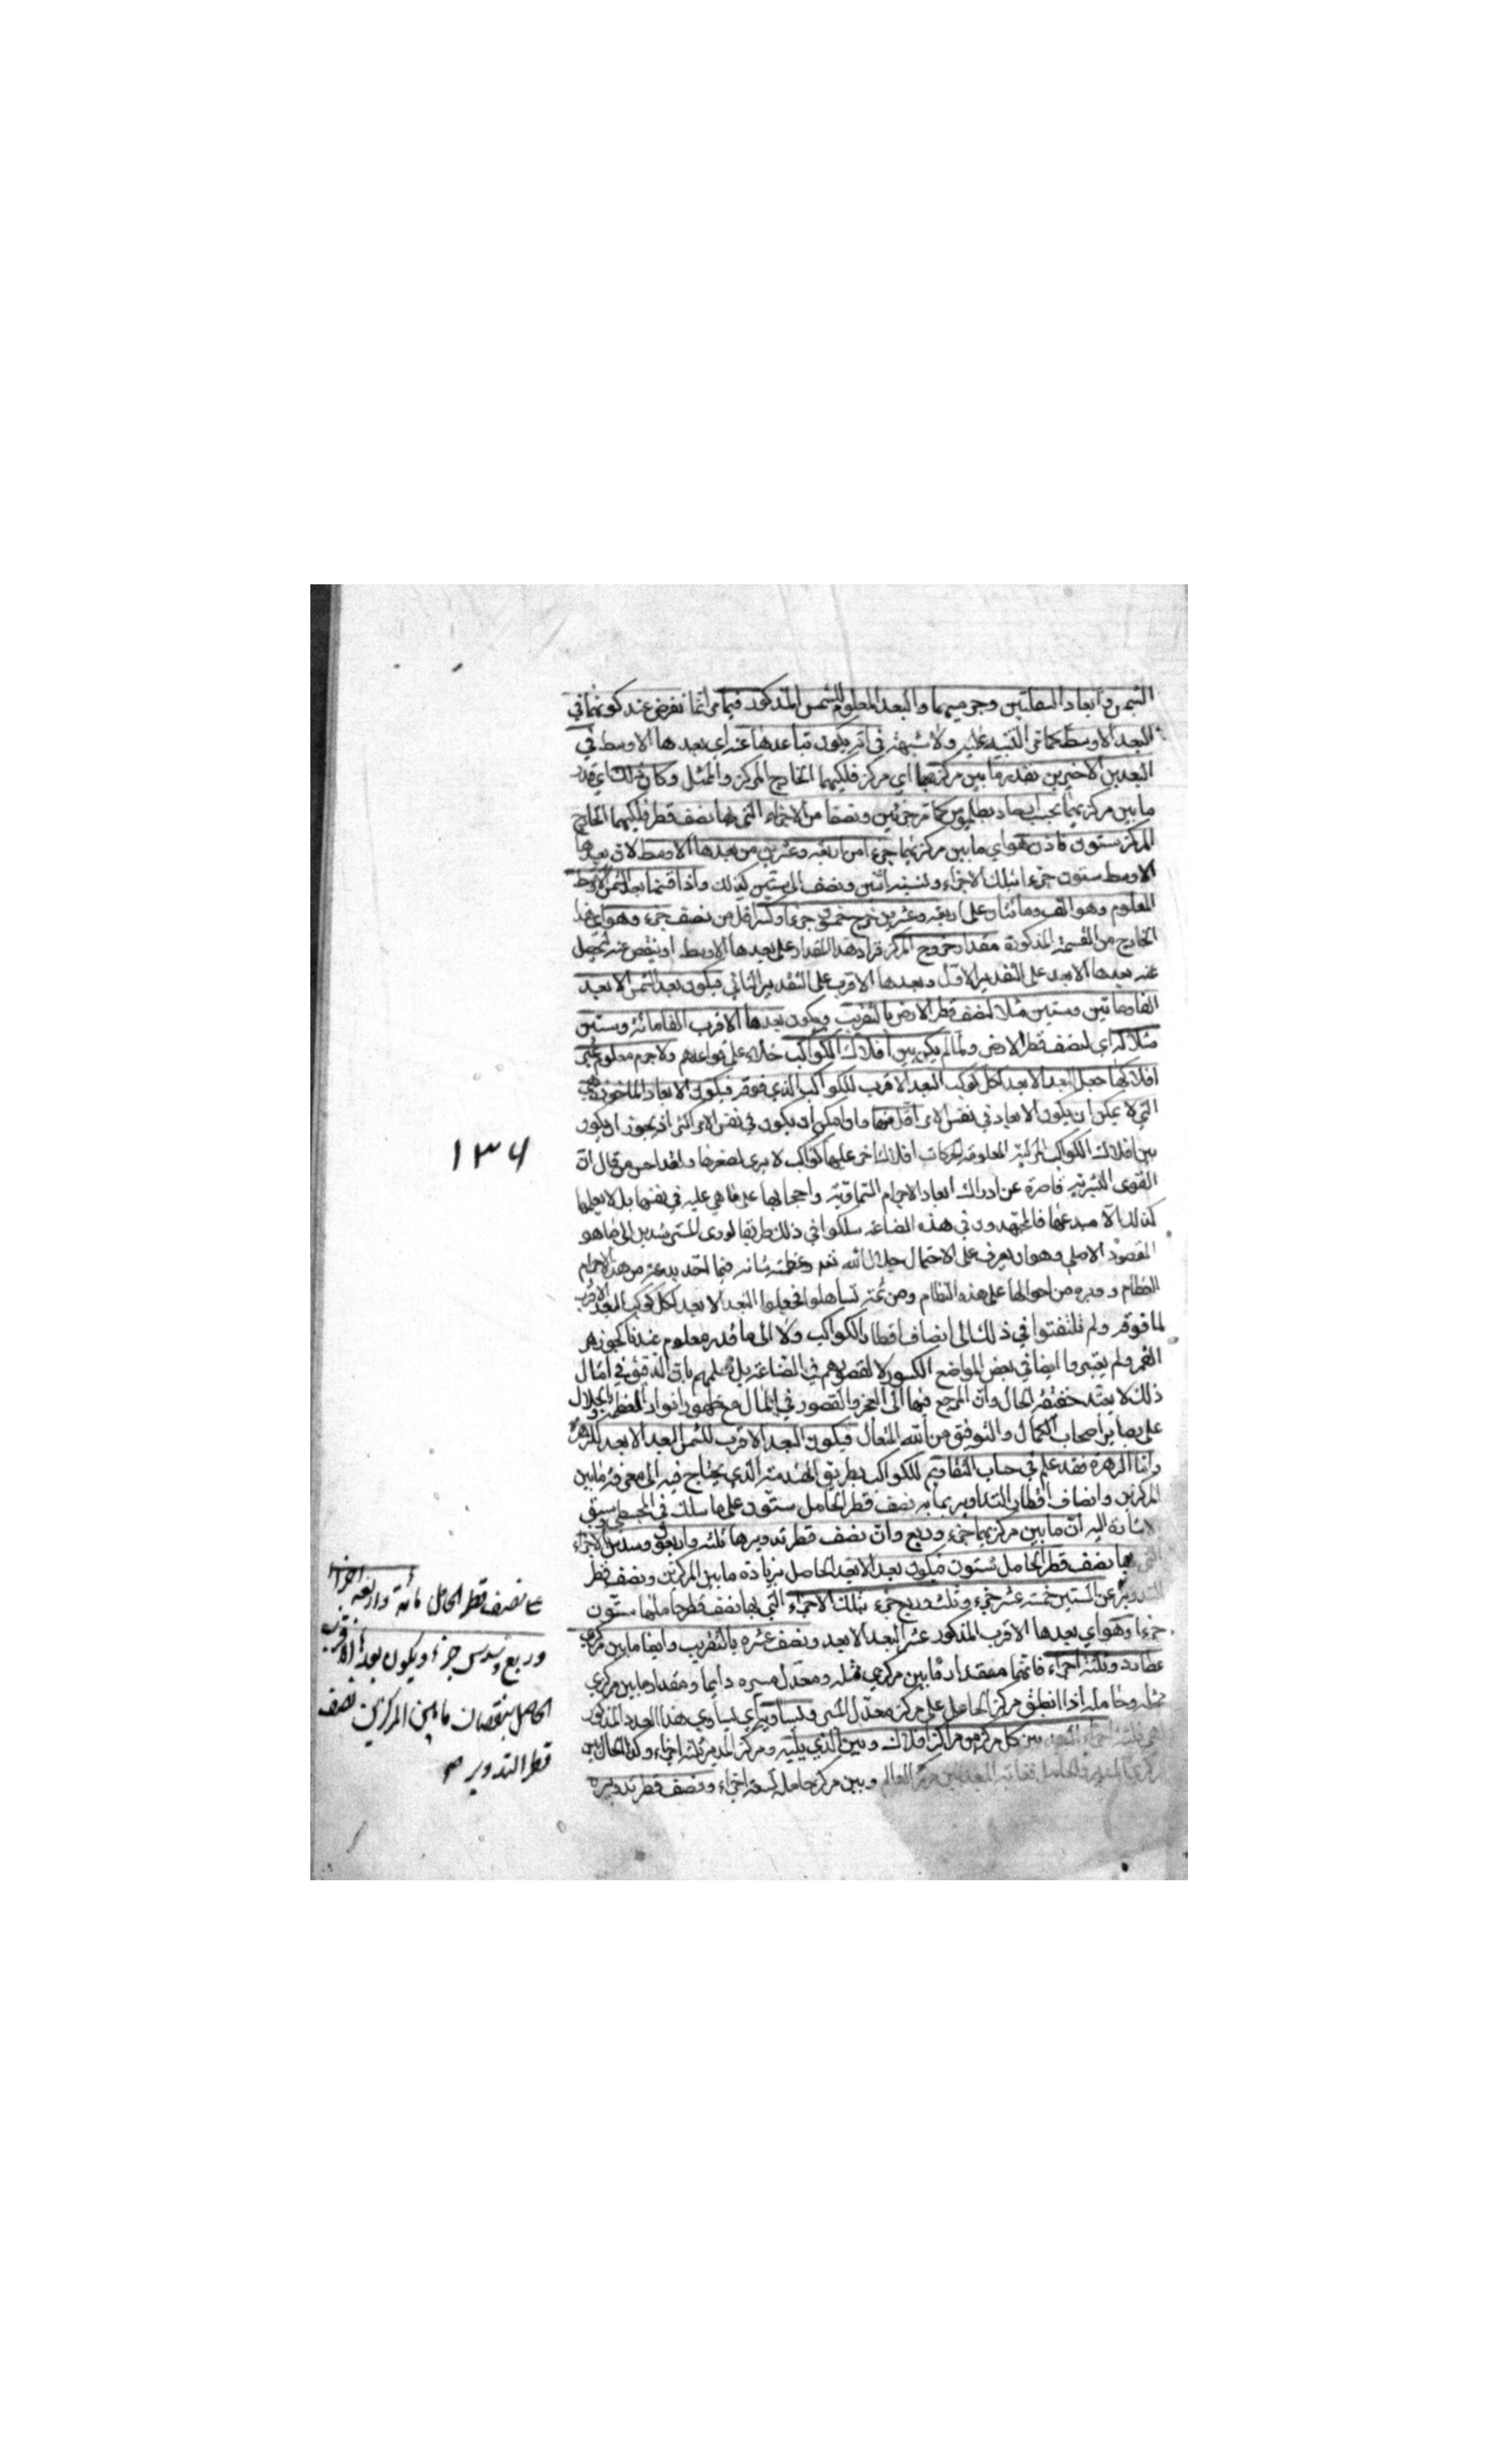 الشمس وابعاد السفليتين وجرميهما والبعد المعلوم للشمس المذكور فيما مر انما نفرض عند كونهما في
البعد الاوسط كما مر التنبيه عليه ولا شبهة في انه يكون تباعدها عنه اي بعدها الاوسط في
البعدين الاخيرين بقدر ما بين مركزيهما اي مركز فلكيهما الخارج المركز والممثل وكان ذلك اي قدر
ما بين مركزيهما بحسب ارصاد بطلميوس كما مر جزئين ونصفا من الاجزاء التي بها نصف قطر فلكيهما الخارج
المركز ستون فاذن هو اي ما بين مركزيهما جزءا من اربعة وعشرين من بعدها الاوسط لان بعدها
الاوسط ستون جزءا بتلك الاجزاء ونسبة اثنين ونصف الى ستين كذلك واذا قسمنا بعد الشمس الاوسط
المعلوم وهو الف ومائتان وعلى اربعة وعشرين خرج خمسون جزءا وكسر اقل من نصف جزء وهو اي هذا
الخارج من القسمة المذكورة مقدار خروج المركز فزاد هذا المقدار على بعدها الاوسط او ينقص عنه ليحصل
عنه بعدها الابعد على التقدير الاول وبعدها الاقرب على التقدير الثاني فيكون بعد الشمس الابعد
الفا ومائتين وستين مثلا لنصف قطر الارض بالتقريب ويكون بعدها الاقرب الفا ومائة وستين
مثلا له اي لنصف قطر الارض ولما لم يكن بين افلاك الكواكب خلاء على قواعدهم ولا جرم معلوم غير
افلاكها جعل البعد الابعد لكل كوكب البعد الاقرب للكواكب الذي فوقه فيكون الابعاد الماخوذة هي
التي لا يمكن ان يكون الابعاد في نفس الامر اقل منها وان امكن ان يكون في نفس الامر اكثر اذ يجوز ان يكون
بين افلاك الكواكب المرئية المعلومة الحركات افلاك اخر عليها كواكب لا يرى لصغرها ولقد احسن من قال ان
القوى البشرية قاصرة عن ادراك ابعاد الاجرام السماوية واحجامها على ما هي عليه في نفسها بل لا يعلمها
كذلك الا مبدعها فالمجتهدون في هذه الصناعة سلكوا في ذلك طريقا لودى المسترشدين الى ما هو
المقصود الاصلي وهو ان يعرف على الاحتمال جلال الله تعه وعظمة شانه فيما احد يده عن من هذه الاجرام
العظام و من احوالها على هذه النظام ومن ثمة تساهلوا فجعلوا البعد الابعد لكل كوكب البعد الاقرب
لما فوقه ولم يلتفتوا في ذلك الى انصاف اقطار الكواكب ولا الى ما قدره معلوم عندنا كجوزهر
القمر ولم يعتبروا ايضا في بعض المواضع الكسور لا لقصورهم في الصناعة بل لعلمهم بان التدقيق في امثال
ذلك لا يفيد حقيقة الحال وان المرجع فيها الى العجز والقصور في المال مع ظهور انوار العظمة والجلال
على بصاير اصحاب الكمال والتوفيق من الله المتعال فيكون البعد الاقرب للشمس البعد الابعد للزهرة
واما الزهرة فقد علم في حساب التقاويم للكواكب بطريق الهندسة الذي يحتاج فيه الى معرفة ما بين
المركزين وانصاف اقطار التداوير بما به نصف قطر الحامل ستون على ما سلك في المجسطي وسبق
الاشارة اليه ان ما بين مركزيهما جزء وربع وان نصف قطر تدويرها ثلثة واربعون وسدس الاجزاء
التي بها نصف قطر الحامل ستون فيكون بعد الابعد الحاصل بزيادة ما بين المركزين ونصف قطر
التدوير عن الستين خمسة عشر جزء وثلث وربع جزء بتلك الاجزاء التي بها نصف قطر حاملها ستون
جزءا وهو اي بعدها الاقرب المذكور عشر البعد الابعد ونصف عشره بالتقريب وايضا ما بين مركزي
عطارد وثلثة اجزاء فانهما مقدار ما بين مركزي ممثله ومعدل مسيره دايما ومقدار ما بين مركزي
ممثله وحامله اذا انطبق مركز الحامل على مركز معدل المسير ويساوي اي يساوي هذا العدد المذكور
اعني ثلثة اجزاء البعد بين كل مركز من مراكز افلاك وبين الذي يليه ومركز المدير ثلثة اجزاء وكذا الحال بين
مركزي المدير والحامل فغاية البعد بين مركز العالم وبين مركز حامله تسعة اجزاء ونصف قطر تدويره
١٣٦
على نصف قطر الحامل مائة واربعة اجزاء
وربع وسدس جزء ويكون بعدها الاقرب
الحاصل بنقصان ما بين المركزين نصف
قطر التدوير صح